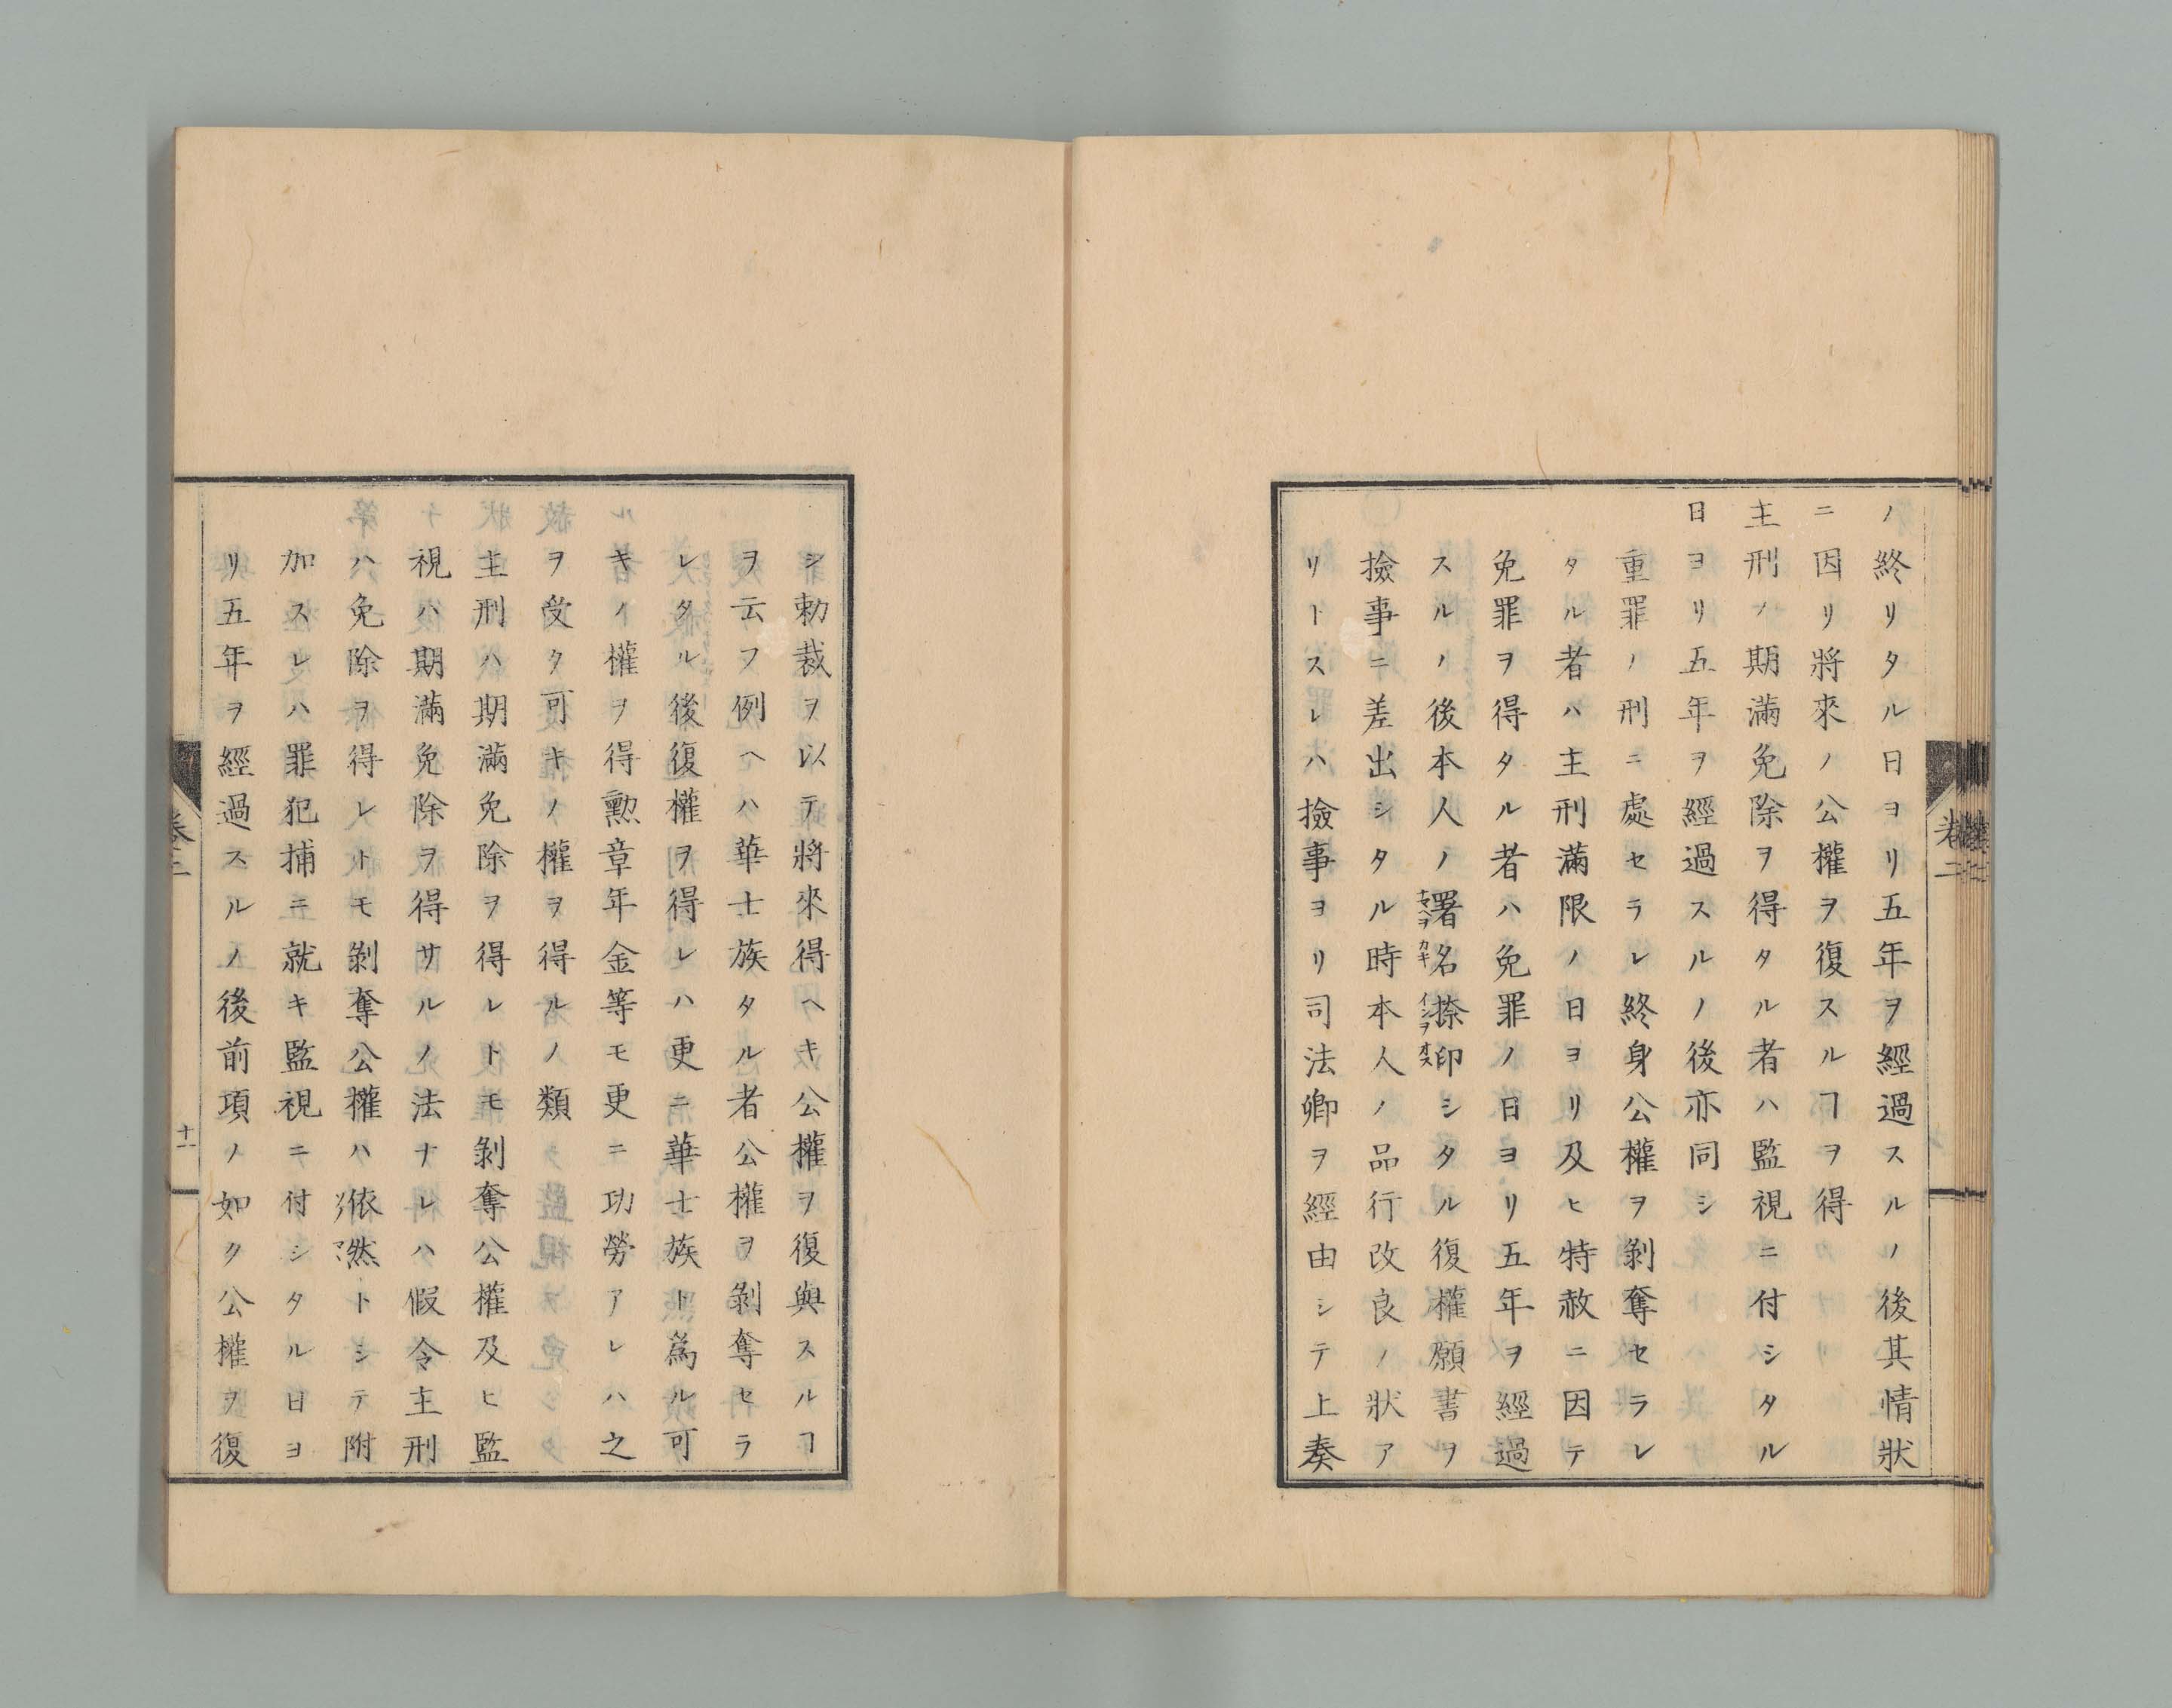 ノ終リタル日ヨリ五年ヲ經過スルノ後其情狀
ニ因リ將來ノ公權ヲ復スルヿヲ得
主刑ノ期滿免除ヲ得タル者ハ監視ニ付シタル
日ヨリ五年ヲ經過スルノ後亦同シ
重罪ノ刑ニ處セラレ終身公權ヲ剝奪セラレ
タル者ハ主刑滿限ノ日ヨリ及ヒ特赦ニ因テ
免罪ヲ得タル者ハ免罪ノ日ヨリ五年ヲ經過
スルノ後本人ノ署名捺印シタル復權願書ヲ
撿事ニ差出シタル時本人ノ品行改良ノ狀ア
リトスレハ撿事ヨリ司法卿ヲ經由シテ上奏
シ勅裁ヲ以テ將來得ヘキ公權ヲ復與スルヿ
ヲ云フ例ヘハ華士族タル者公權ヲ剝奪セラ
レタル後復權ヲ得レハ更ニ華士族ト爲ル可
キノ權ヲ得勲章年金等モ更ニ功勞アレハ之
ヲ受ク可キノ權ヲ得ルノ類
主刑ハ期滿免除ヲ得レトモ剝奪公權及ヒ監
視ハ期滿免除ヲ得サルノ法ナレハ假令主刑
ハ免除ヲ得レトモ剝奪公權ハ依然トシテ附
加スレハ罪犯捕ニ就キ監視ニ付シタル日ヨ
リ五年ヲ經過スルノ後前項ノ如ク公權ヲ復
卷二
十一